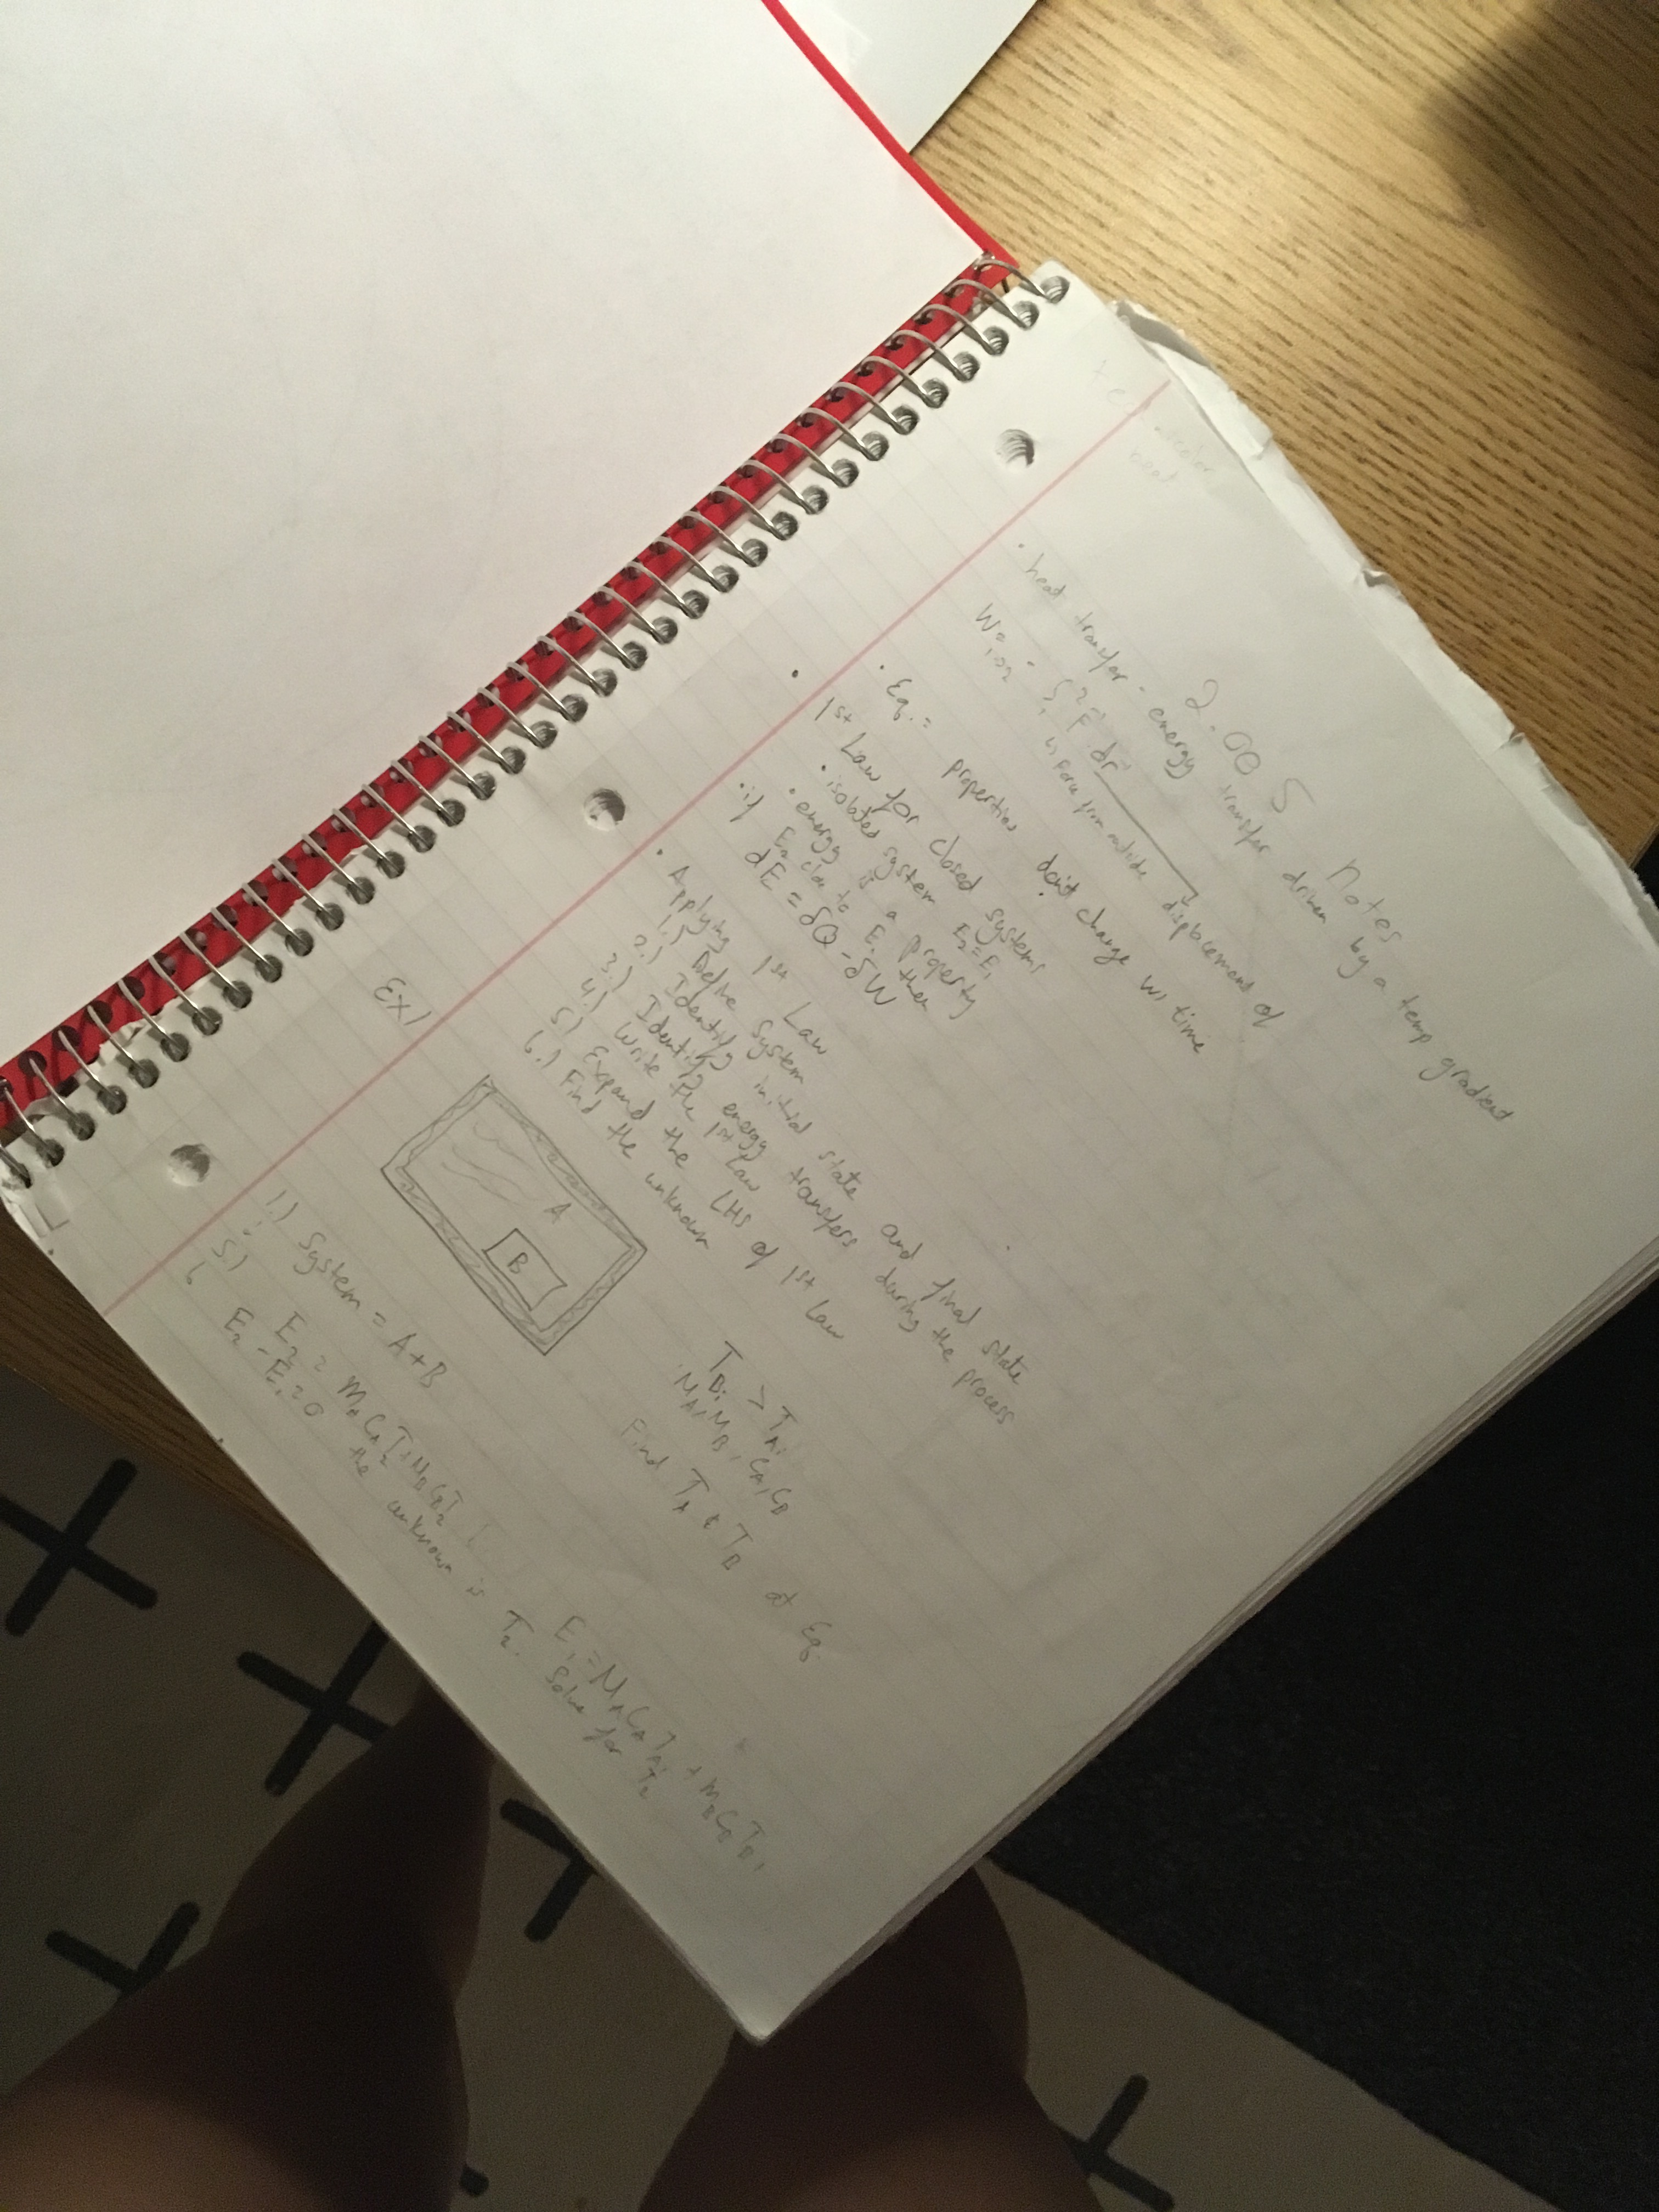 2.005 Notes
• heat transfer - energy transfer driven by a temp gradient
W₁₋₂ = ∫₁² F⃗ dr⃗ displacement of
↳ force from outside
• Eq. = properties don't change w/ time
• 1st Law for closed systems
• isolated system E₂=E₁
• energy is a property
• if E₂ close to E₁ then
dE = δQ - δW
• Applying 1st Law
1.) Define System
2.) Identify initial state and final state
3.) Identify energy transfers during the process
4.) Write the 1st Law
5) Expand the LHS of 1st Law
6.) Find the unknown
Ex/
A
B
T_Bi > T_Ai
M_A, M_B, C_A, C_B
Find T_A & T_B at Eq
1.) System = A+B
5.) E₂ = M_A C_A T₂ + M_B C_B T₂ E₁ = M_A C_A T_Ai + M_B C_B T_Bi
6 E₂ - E₁ = 0 the unknown is T₂. Solve for T₂